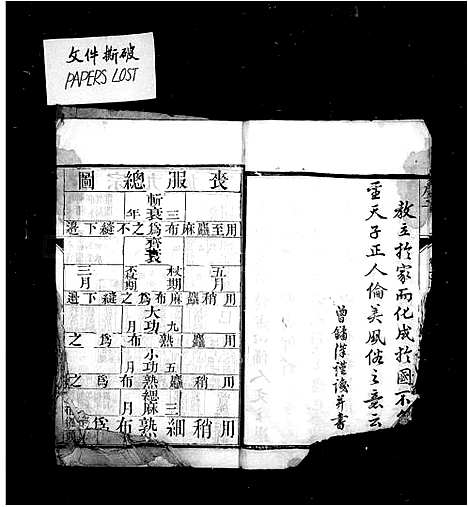 文件撕破
PAPERS LOST
教立於家而化成於國不
天子正人倫美風俗之意云
曾鏞謹識并書
喪服總圖
斬衰三年
用至麤麻布為之不縫下邊
齊衰
五月
杖期
不杖期
三月
用稍麤麻布為之縫下邊
大功九月
用麤熟布為之
小功五月
用稍麤熟布為之
緦麻三月
用稍細熟布為